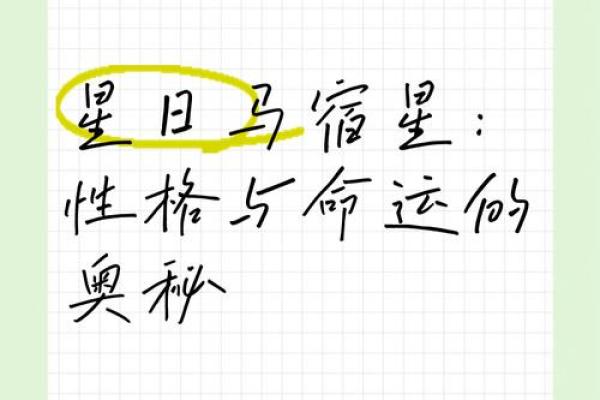 星日马宿星:
性格与命运的
奥秘